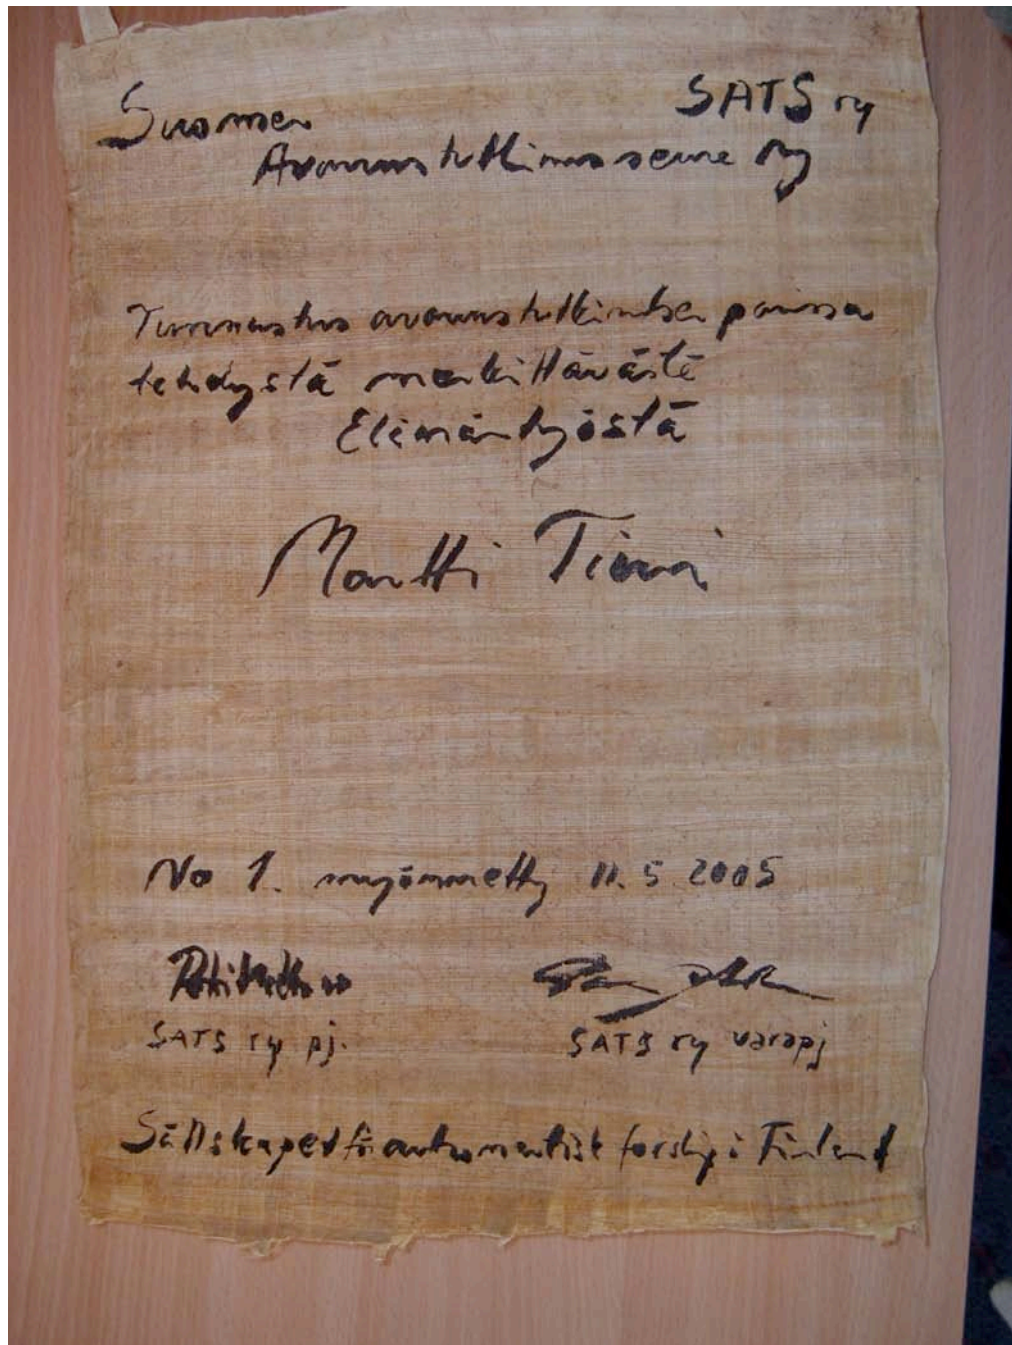 Suomen SATS ry
Avaruustutkimusseura ry
Tunnustus avaruustutkimuksen parissa
tehdystä merkittävästä
Elämäntyöstä
Martti Tiuri
No 1. myönnetty 11.5 2005
SATS ry pj.
SATS ry varapj
Sällskapet för astronautisk forskning i Finland